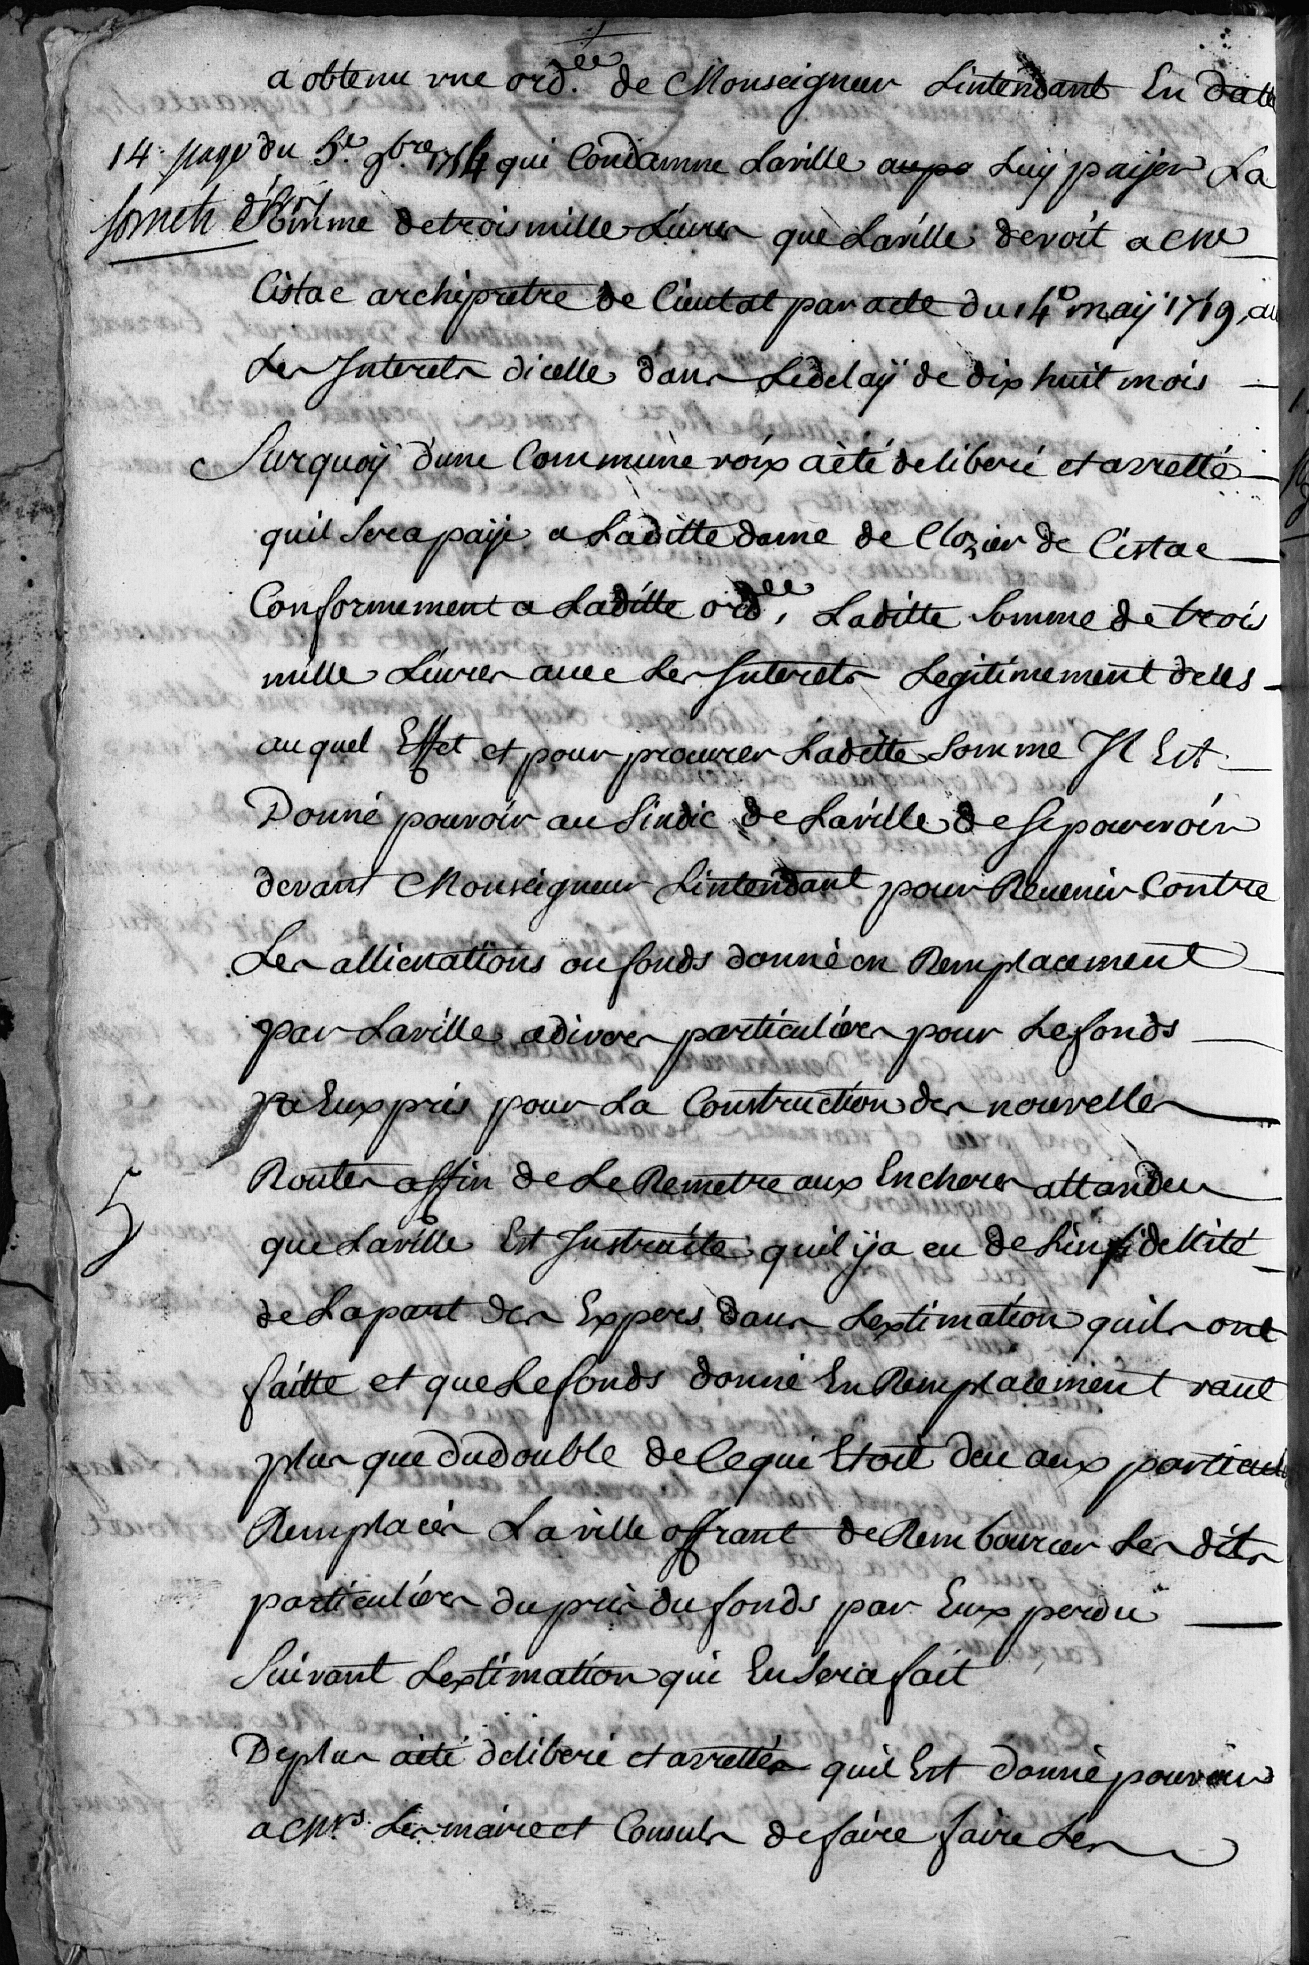 a obtenu vne ord.ee de Monseigneur Lintendant En datte
14. page du 5.e 9bre 1754 qui Condamne Laville a luy paÿer La
somme de trois mille Liures que Laville devoit a Mre
Cistac archipretre de Cieutat par acte du 14o maÿ 1719, au
Les Interets dicelle dans Ledelaÿ de dix huit mois
Surquoÿ dune Commune voix aèté deliberé et arretté
quil Sera paÿe a Laditte dame de Clozier de Cistac
Conformement a Laditte ord.ee, Laditte Somme de trois
mille Liures auec Les Interets Legitimement deus
au quel Effet et pour procurer Laditte Somme Il Est
Donné pouvoir au Sindic de Laville de Se pourvoir
devant Monseigneur Lintendant pour Reuenir Contre
Les allienations ou fonds donné en Remplacement
par Laville a divers particuliers pour Le fonds
Eux pris pour La Construction des nouvelles
Routes affin de Le Remetre aux Encheres attandeu
que Laville Est Instruite quil ÿa eu de Linfidellité
5
de Lapart des Expers dans Lextimation quils ont
faitte et que Le fonds donné En Remplacement vaut
plus que du double de Ce qui Etoit deu aux particul
Remplacés La ville offrant de Rembourcer Les dits
particuliers du prix du fonds par Eux perdu
Suivant Lextimation qui En Sera fait
Deplus aèté deliberé et arretté quil Est donné pouvoir
a Mrs. Les maire et Consuls de faire faire Les